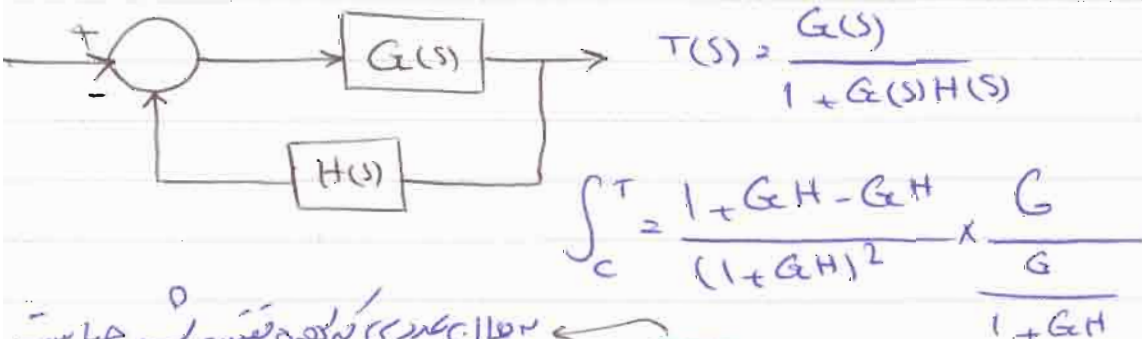 +
-
G(S)
H(S)
T(S) = G(S) / 1 + G(S)H(S)
∫_C^T = 1 + GH - GH / (1 + GH)^2 × G / G / 1 + GH